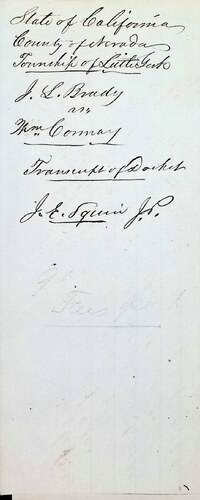 State of California
County of Nevada
Township of Little York
J. L. Brady
vs
Wm Conway
Transcript of Docket
J. E. Squire J.P.
Fees